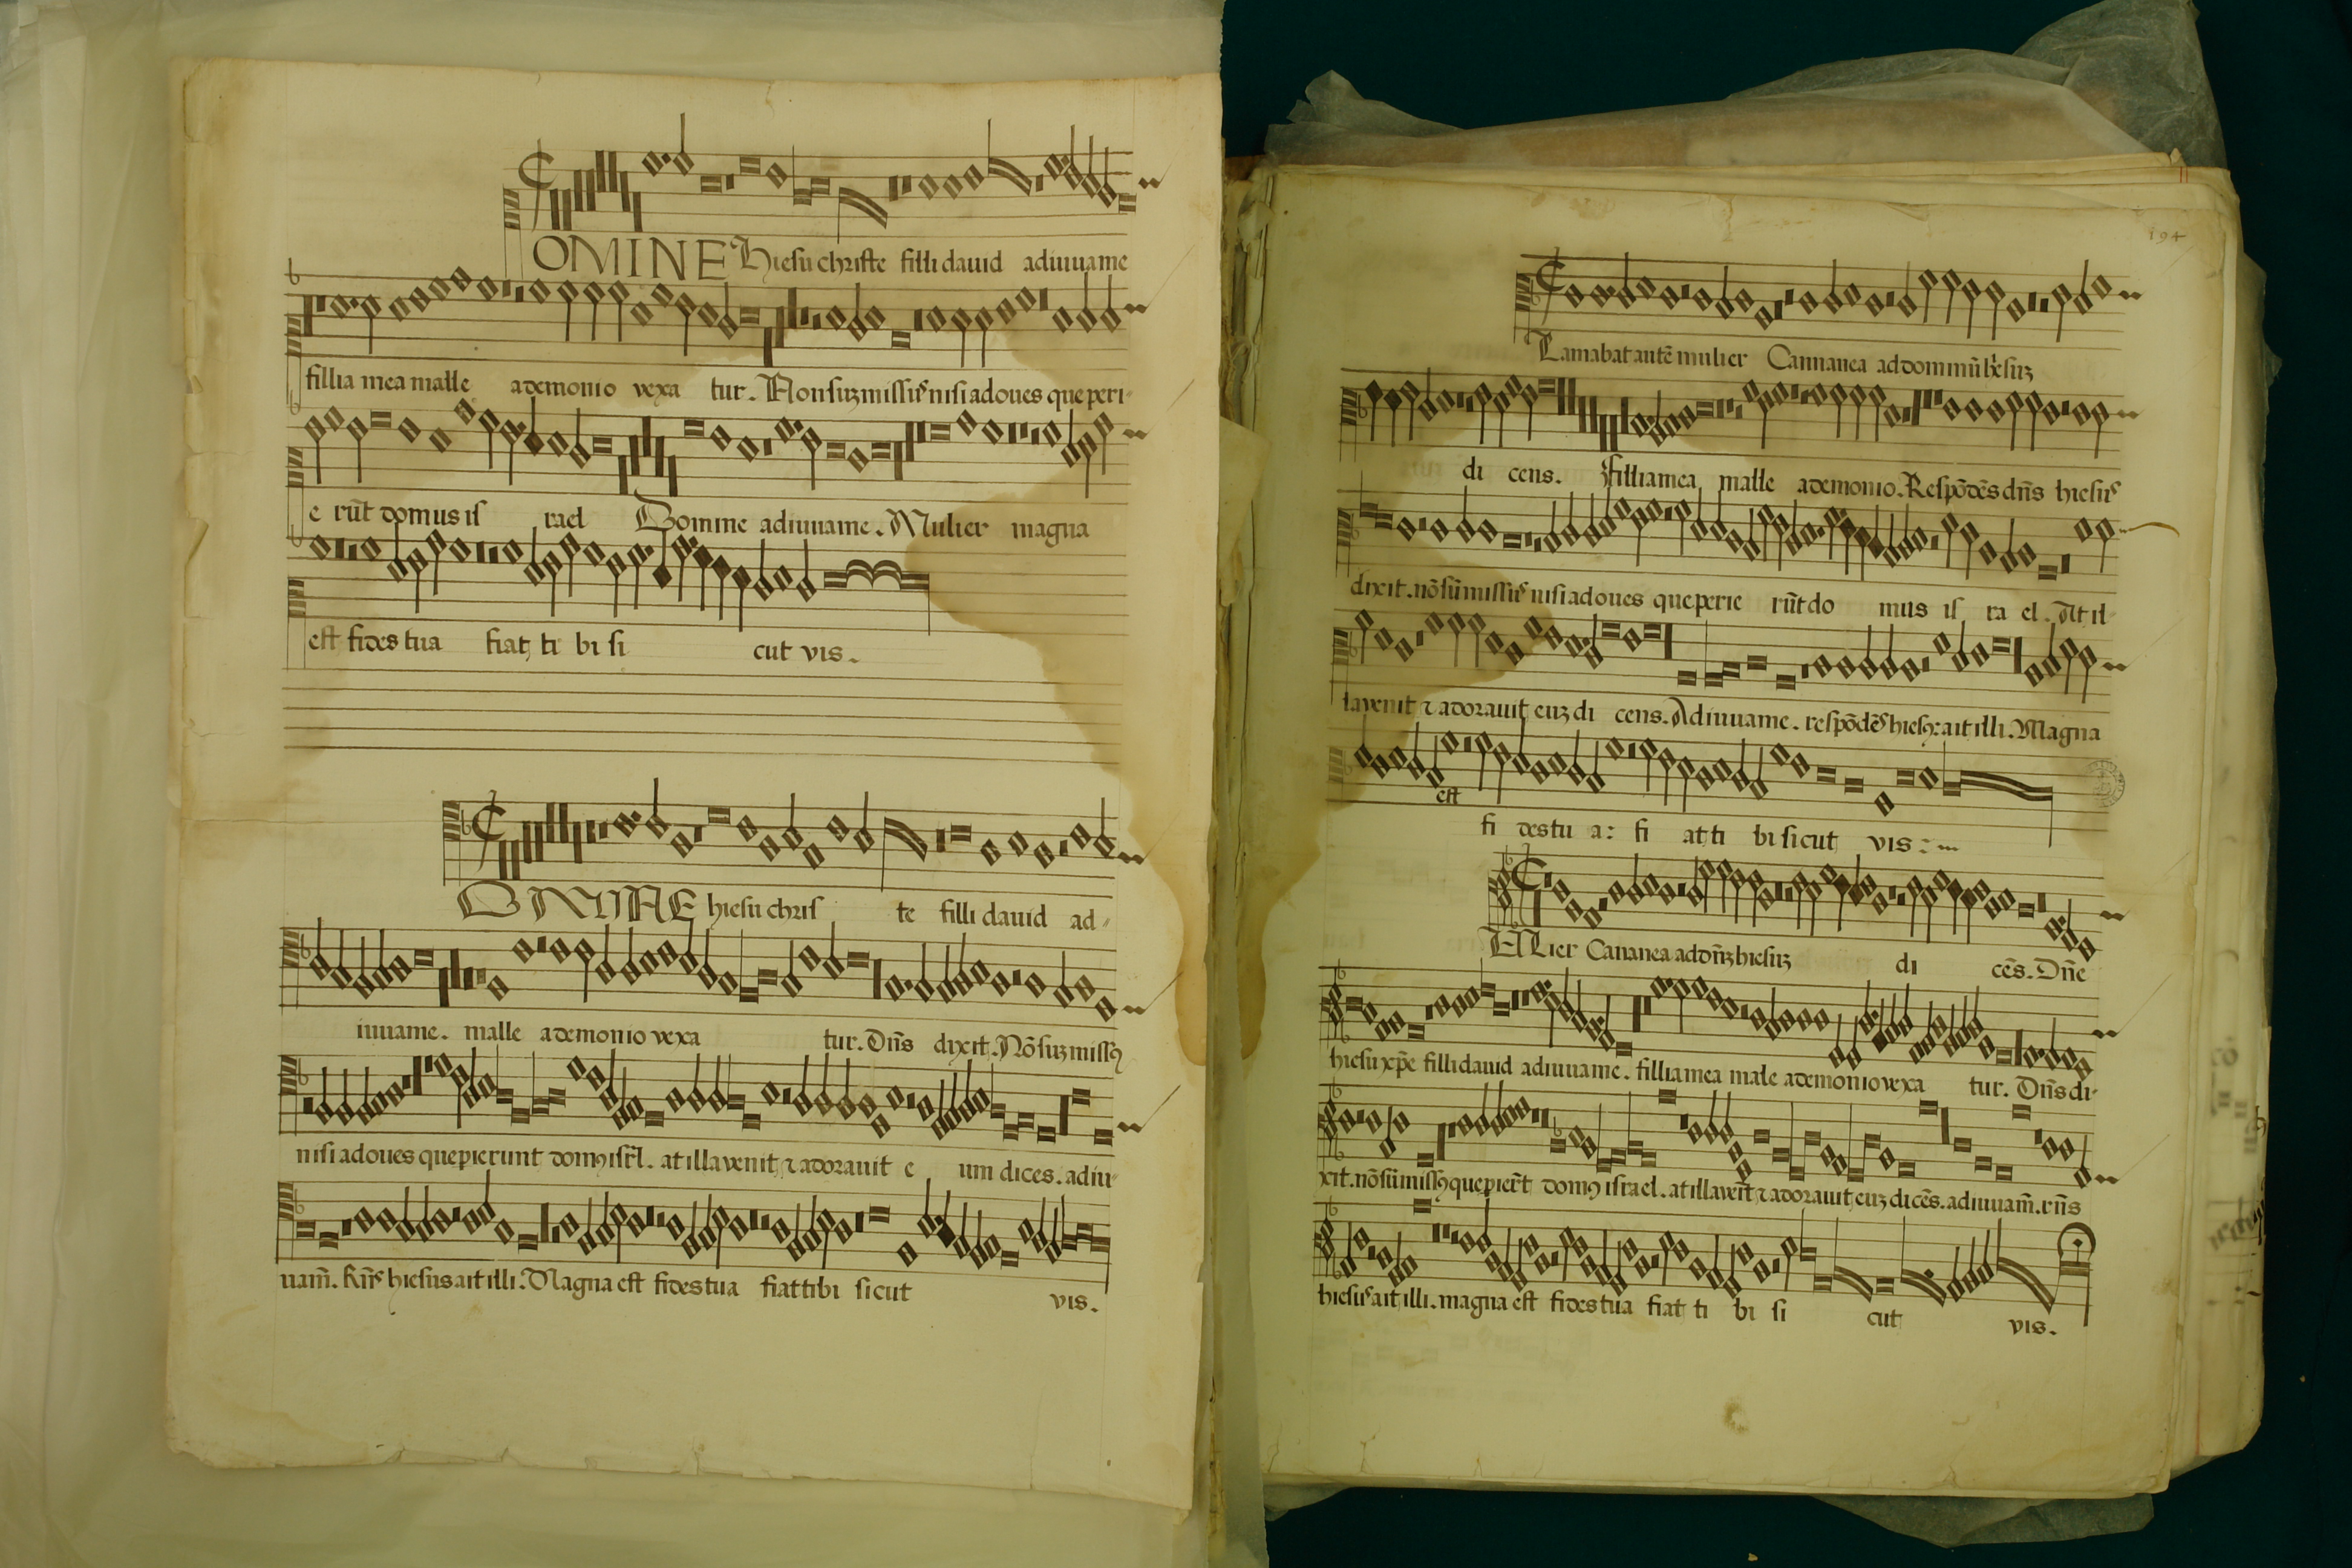 OMINE Hiesu christe filli dauid adiuuame
fillia mea malle ademonio vexa tur. Non suz missus nisi adoues que peri-
e rūt domus is rael Domine adiuuame. Mulier magna
est fides tua fiat ti bi si cut vis.
OMINE hiesu chris te filli dauid ad-
iuuame. malle ademonio vexa tur. Dn̄s dixit. Nō suz missꝰ
nisi adoues que pierunt domꝰ isrl̄. at illa venit ⁊ adorauit e um dices. adiu-
uam̄. Rn̄s hiesus ait illi. Magna est fides tua fiat tibi sicut vis.
194
Lamabat autē mulier Cannanea ad dominū hiesuz
di cens. filliamea malle ademonio. Respōdēs dn̄s hiesus
dixit. nō sū missus nisi adoues que perie rūt do mus is ra el. At il-
la venit ⁊ adorauit euz di cens. Adiuuame. respōdēs hiesꝰ: ait illi. Magna
est
fi des tu a: fi at ti bi sicut vis:
Lier Cananea ad dn̄z hiesuz di cēs. Dn̄e
hiesu xp̄e filli dauid adiuuame. filliamea male ademonio vexa tur. Dn̄s di-
xit. nō sū missꝰ que pierūt domꝰ israel. at illa venit ⁊ adorauit euz dicēs. adiuuam̄. rn̄s
hiesus ait illi. magna est fides tua fiat ti bi si cut vis.